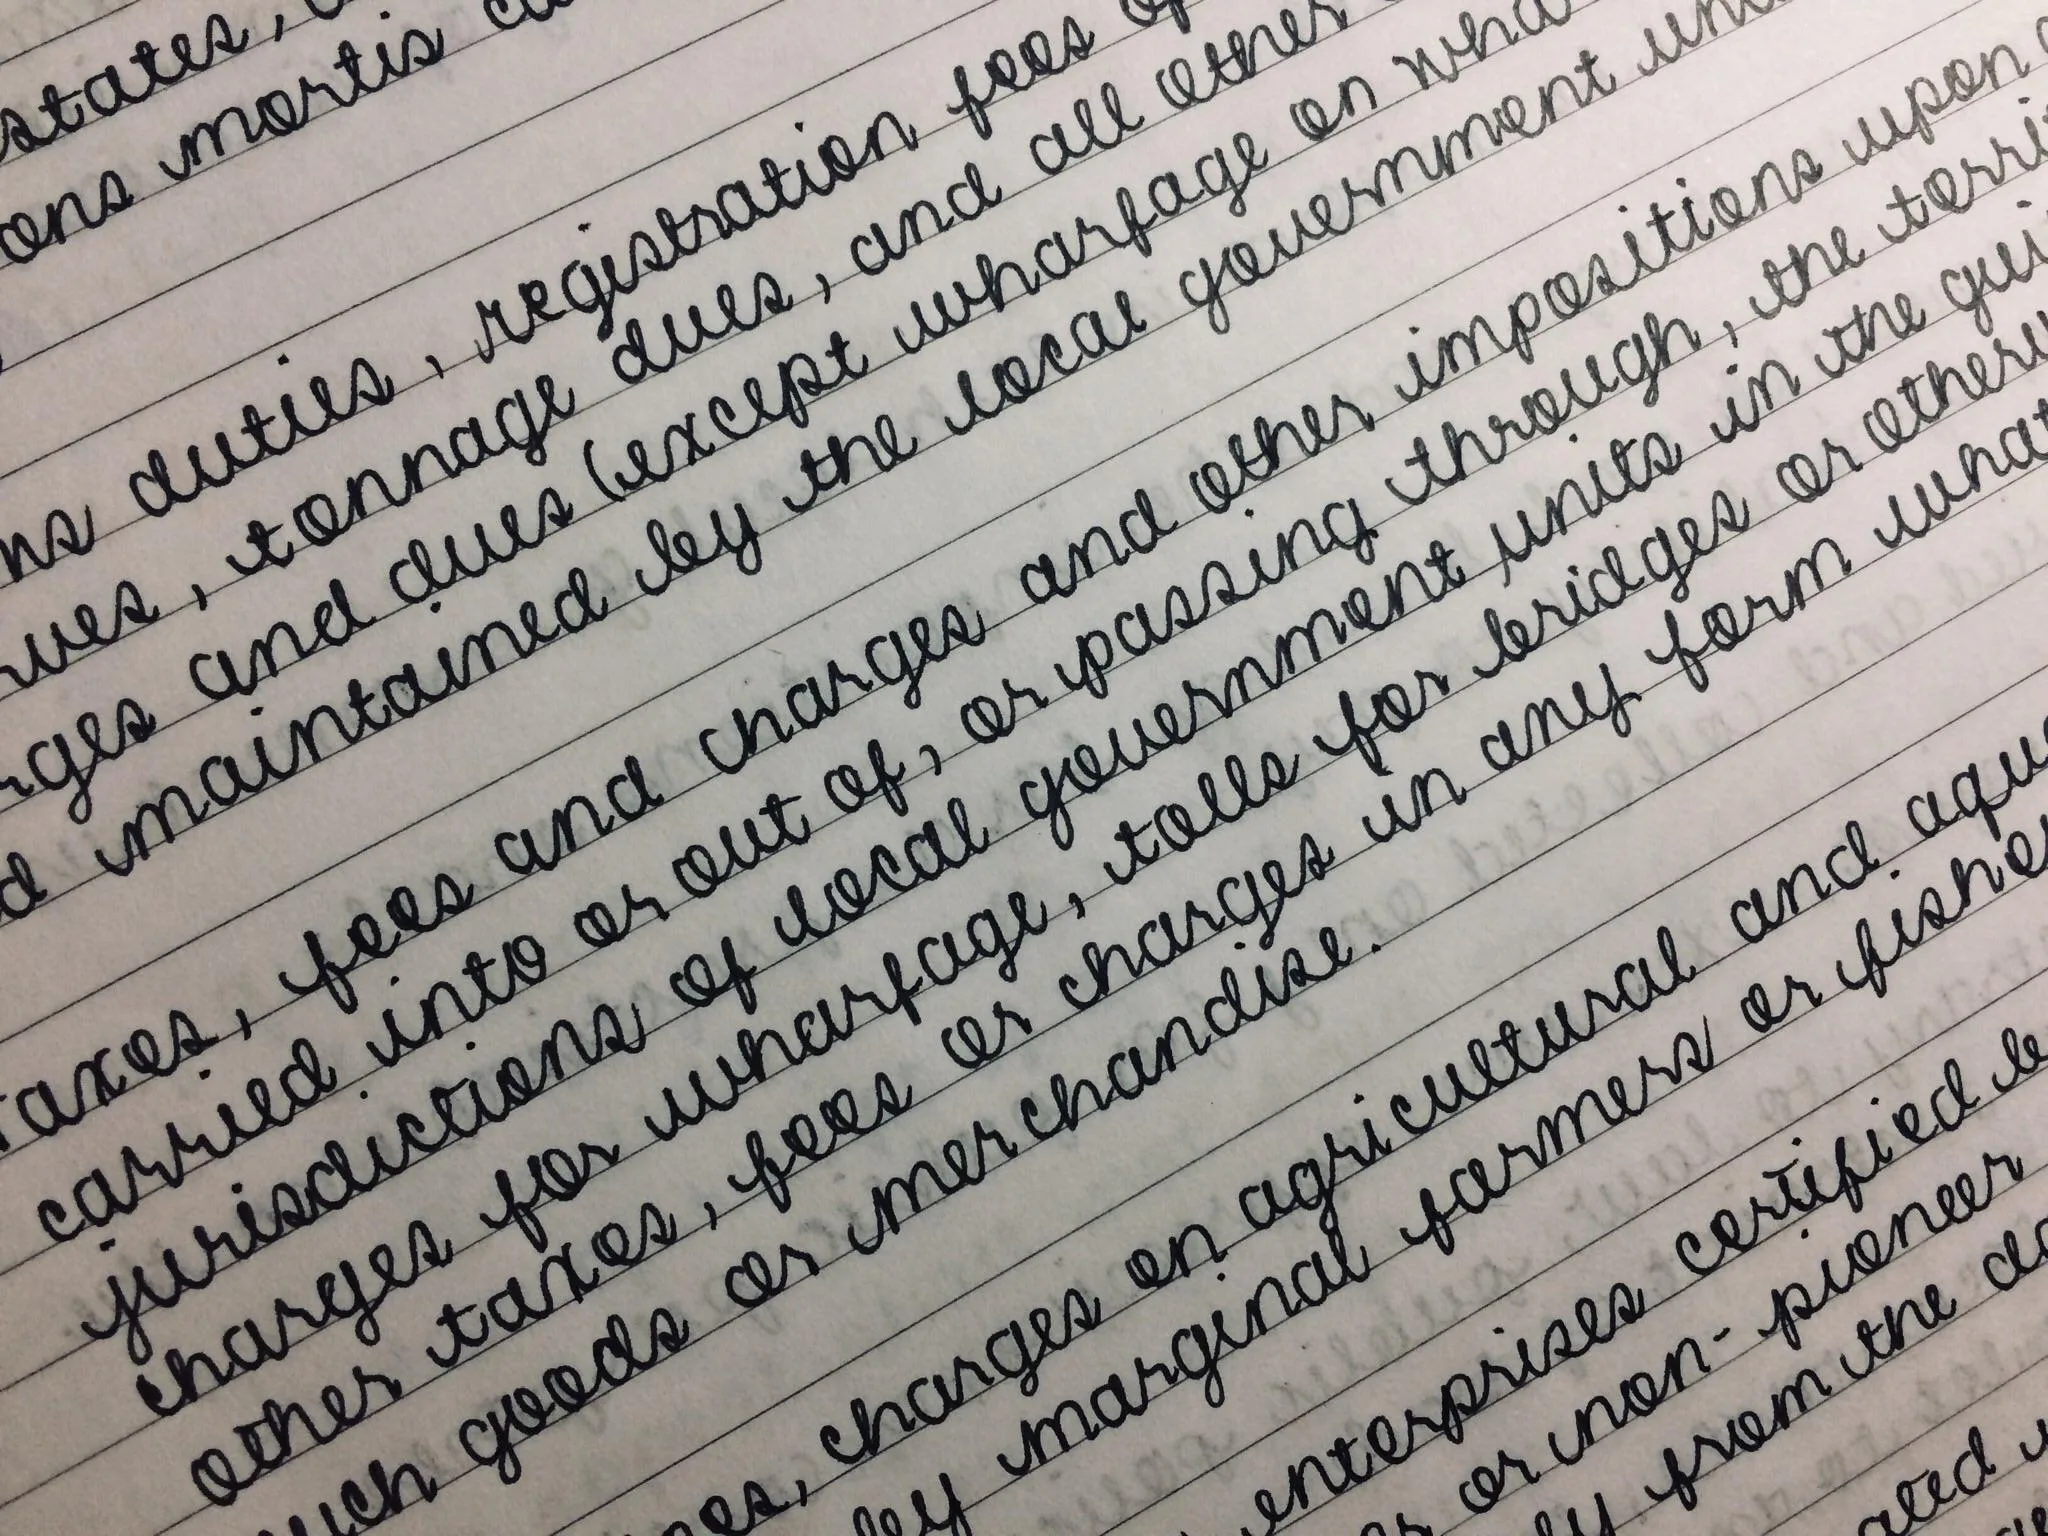 states,
ons mortis
ns duties, registration fees of
rves, tonnage dues, and all other
rges and dues (except wharfage on wha
d maintained by the local government uni
Taxes, fees and charges and other impositions upon g
carried into or out of, or passing through, the territ
jurisdictions of local government units in the gui
charges for wharfage, tolls for bridges or otherw
other taxes, fees or charges in any form what
uch goods or merchandise.
es, charges on agricultural and aqua
by marginal farmers or fisher
enterprises certified b
or non-pioneer
ly from the da
ated